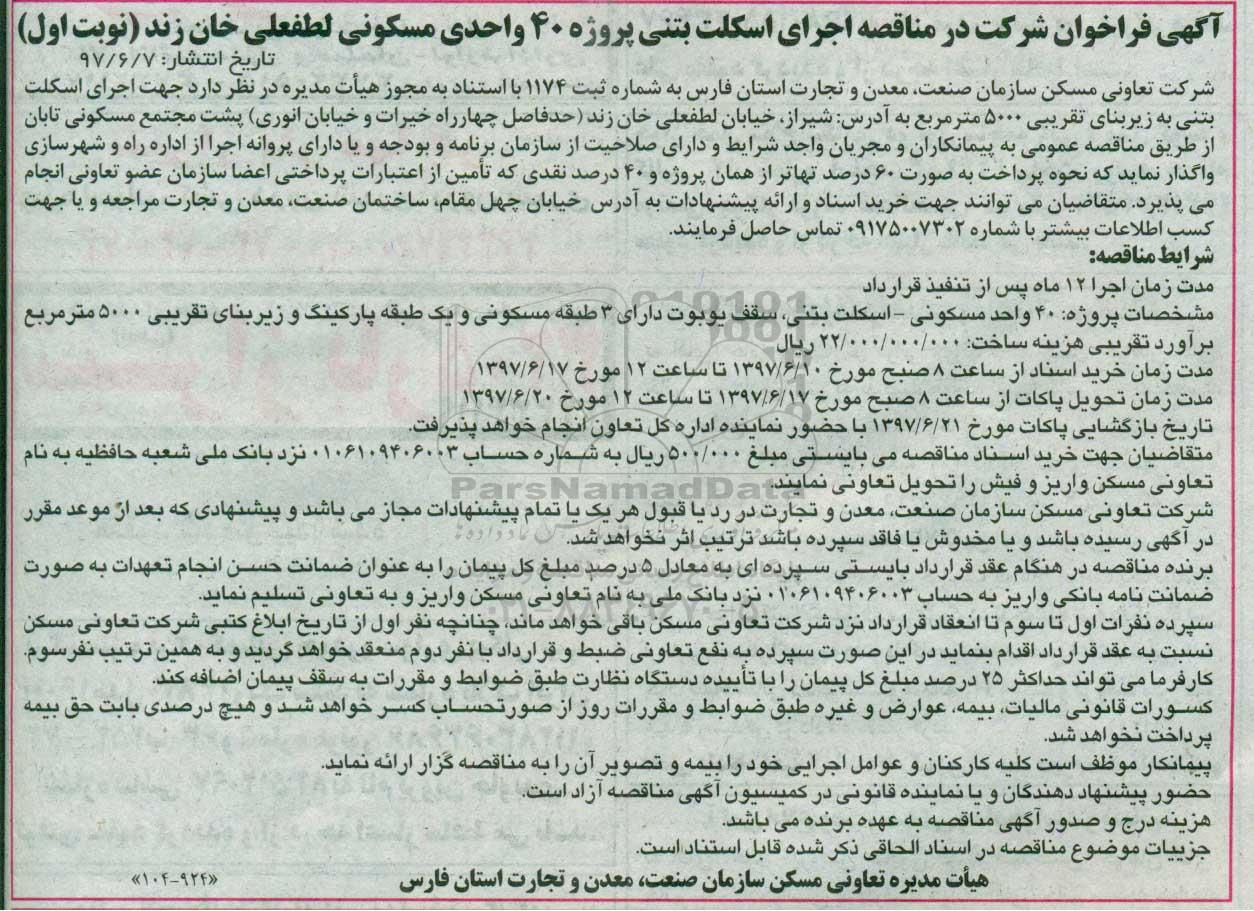 آگهی فراخوان شرکت در مناقصه اجرای اسکلت بتنی پروژه ۴۰ واحدی مسکونی لطفعلی خان زند (نوبت اول)
تاریخ انتشار: ۹۷/۶/۷
شرکت تعاونی مسکن سازمان صنعت، معدن و تجارت استان فارس به شماره ثبت ۱۱۷۴ با استناد به مجوز هیأت مدیره در نظر دارد جهت اجرای اسکلت
بتنی به زیربنای تقریبی ۵۰۰۰ مترمربع به آدرس: شیراز، خیابان لطفعلی خان زند (حدفاصل چهارراه خیرات و خیابان انوری) پشت مجتمع مسکونی تابان
از طریق مناقصه عمومی به پیمانکاران و مجریان واجد شرایط و دارای صلاحیت از سازمان برنامه و بودجه و یا دارای پروانه اجرا از اداره راه و شهرسازی
واگذار نماید که نحوه پرداخت به صورت ۶۰ درصد تهاتر از همان پروژه و ۴۰ درصد نقدی که تأمین از اعتبارات پرداختی اعضا سازمان عضو تعاونی انجام
می پذیرد. متقاضیان می توانند جهت خرید اسناد و ارائه پیشنهادات به آدرس خیابان چهل مقام، ساختمان صنعت، معدن و تجارت مراجعه و یا جهت
کسب اطلاعات بیشتر با شماره ۰۹۱۷۵۰۰۷۳۰۲ تماس حاصل فرمایند.
شرایط مناقصه:
مدت زمان اجرا ۱۲ ماه پس از تنفیذ قرارداد
مشخصات پروژه: ۴۰ واحد مسکونی - اسکلت بتنی، سقف یوبوت دارای ۳ طبقه مسکونی و یک طبقه پارکینگ و زیربنای تقریبی ۵۰۰۰ مترمربع
برآورد تقریبی هزینه ساخت: ۲۲/۰۰۰/۰۰۰/۰۰۰ ریال
مدت زمان خرید اسناد از ساعت ۸ صبح مورخ ۱۳۹۷/۶/۱۰ تا ساعت ۱۲ مورخ ۱۳۹۷/۶/۱۷
مدت زمان تحویل پاکات از ساعت ۸ صبح مورخ ۱۳۹۷/۶/۱۷ تا ساعت ۱۲ مورخ ۱۳۹۷/۶/۲۰
تاریخ بازگشایی پاکات مورخ ۱۳۹۷/۶/۲۱ با حضور نماینده اداره کل تعاون انجام خواهد پذیرفت.
متقاضیان جهت خرید اسناد مناقصه می بایستی مبلغ ۵۰۰/۰۰۰ ریال به شماره حساب ۰۱۰۶۱۰۹۴۰۶۰۰۳ نزد بانک ملی شعبه حافظیه به نام
تعاونی مسکن واریز و فیش را تحویل تعاونی نمایند.
ParsNamadData
شرکت تعاونی مسکن سازمان صنعت، معدن و تجارت در رد یا قبول هر یک یا تمام پیشنهادات مجاز می باشد و پیشنهادی که بعد از موعد مقرر
در آگهی رسیده باشد و یا مخدوش یا فاقد سپرده باشد ترتیب اثر نخواهد شد.
برنده مناقصه در هنگام عقد قرارداد بایستی سپرده ای به معادل ۵ درصد مبلغ کل پیمان را به عنوان ضمانت حسن انجام تعهدات به صورت
ضمانت نامه بانکی واریز به حساب ۰۱۰۶۱۰۹۴۰۶۰۰۳ نزد بانک ملی به نام تعاونی مسکن واریز و به تعاونی تسلیم نماید.
سپرده نفرات اول تا سوم تا انعقاد قرارداد نزد شرکت تعاونی مسکن باقی خواهد ماند، چنانچه نفر اول از تاریخ ابلاغ کتبی شرکت تعاونی مسکن
نسبت به عقد قرارداد اقدام بنماید در این صورت سپرده به نفع تعاونی ضبط و قرارداد با نفر دوم منعقد خواهد گردید و به همین ترتیب نفر سوم.
کارفرما می تواند حداکثر ۲۵ درصد مبلغ کل پیمان را با تأییده دستگاه نظارت طبق ضوابط و مقررات به سقف پیمان اضافه کند.
کسورات قانونی مالیات، بیمه، عوارض و غیره طبق ضوابط و مقررات روز از صورتحساب کسر خواهد شد و هیچ درصدی بابت حق بیمه
پرداخت نخواهد شد.
پیمانکار موظف است کلیه کارکنان و عوامل اجرایی خود را بیمه و تصویر آن را به مناقصه گزار ارائه نماید.
حضور پیشنهاد دهندگان و یا نماینده قانونی در کمیسیون آگهی مناقصه آزاد است.
هزینه درج و صدور آگهی مناقصه به عهده برنده می باشد.
جزییات موضوع مناقصه در اسناد الحاقی ذکر شده قابل استناد است.
هیأت مدیره تعاونی مسکن سازمان صنعت، معدن و تجارت استان فارس
«۱۰۴-۹۲۴»